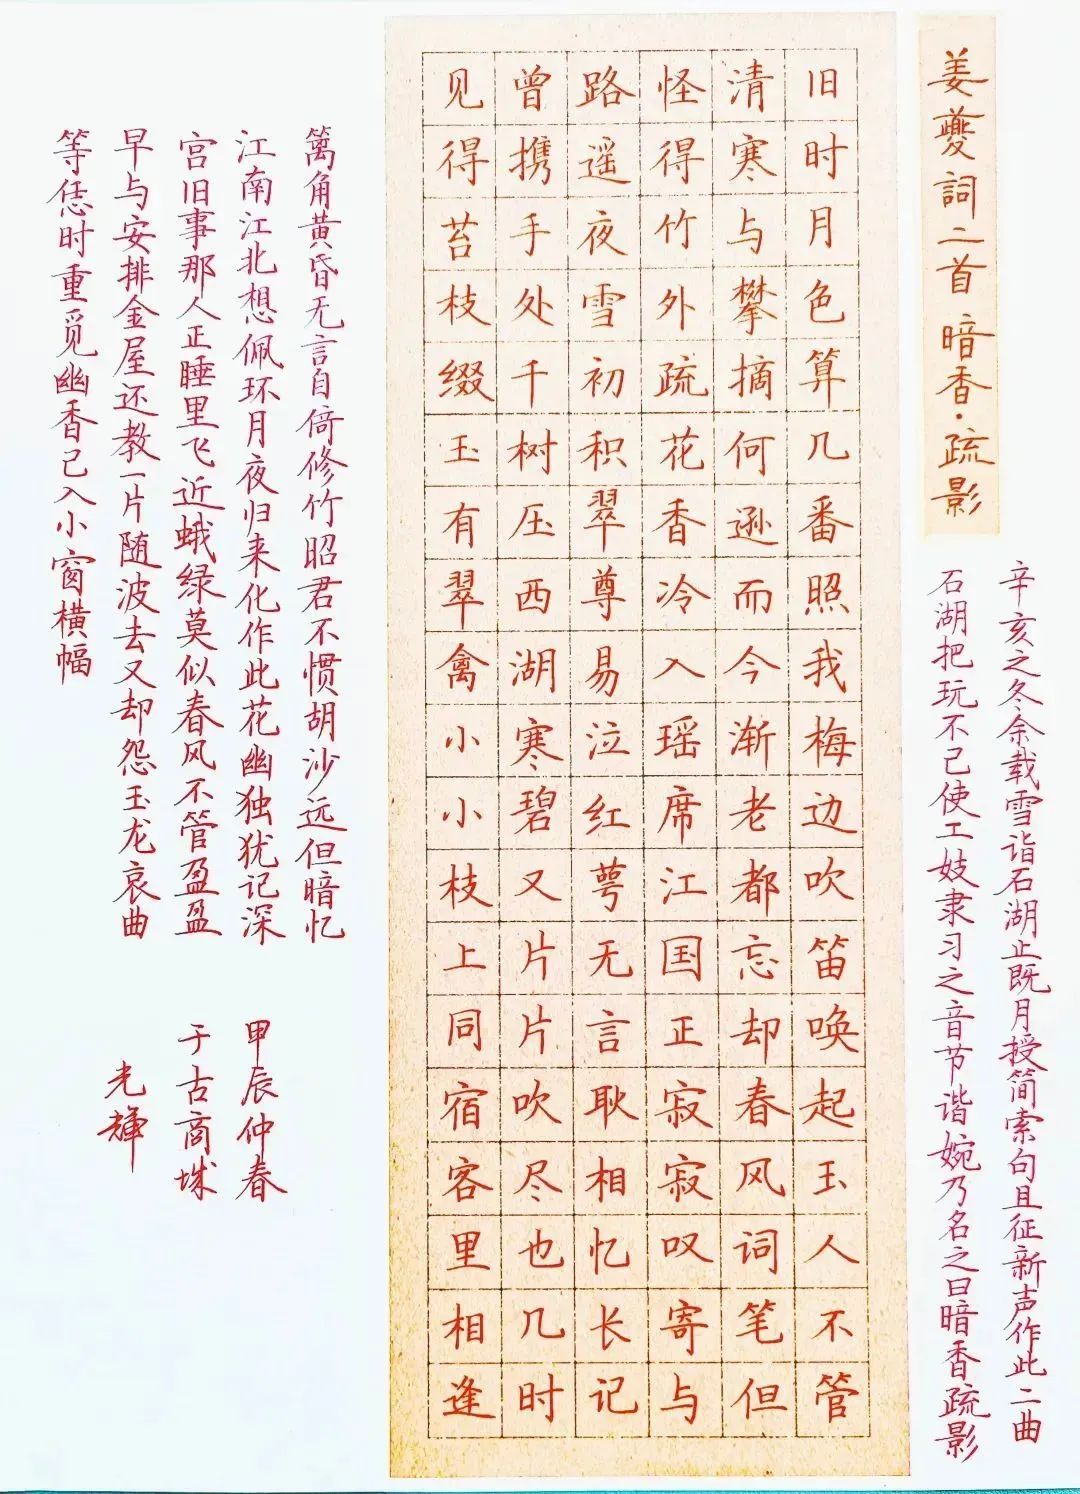 姜夔詞二首 暗香·疏影
辛亥之冬余载雪诣石湖止既月授简索句且征新声作此二曲
石湖把玩不已使工妓隶习之音节谐婉乃名之曰暗香疏影
旧时月色算几番照我梅边吹笛唤起玉人不管
清寒与攀摘何逊而今渐老都忘却春风词笔但
怪得竹外疏花香冷入瑶席江国正寂寂叹寄与
路遥夜雪初积翠尊易泣红萼无言耿相忆长记
曾携手处千树压西湖寒碧又片片吹尽也几时
见得苔枝缀玉有翠禽小小枝上同宿客里相逢
篱角黄昏无言自倚修竹昭君不惯胡沙远但暗忆
江南江北想佩环月夜归来化作此花幽独犹记深
宫旧事那人正睡里飞近蛾绿莫似春风不管盈盈
早与安排金屋还教一片随波去又却怨玉龙哀曲
等恁时重觅幽香已入小窗横幅
甲辰仲春
于古商城
光辉